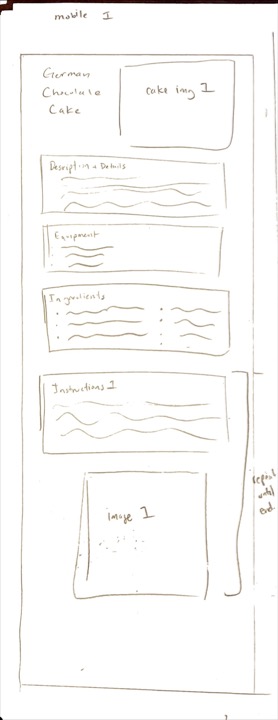 mobile 1
German
Chocolate
Cake
cake img 1
Description + Details
Equipment
Ingredients
Instructions 1
Image 1
repeat
until
end